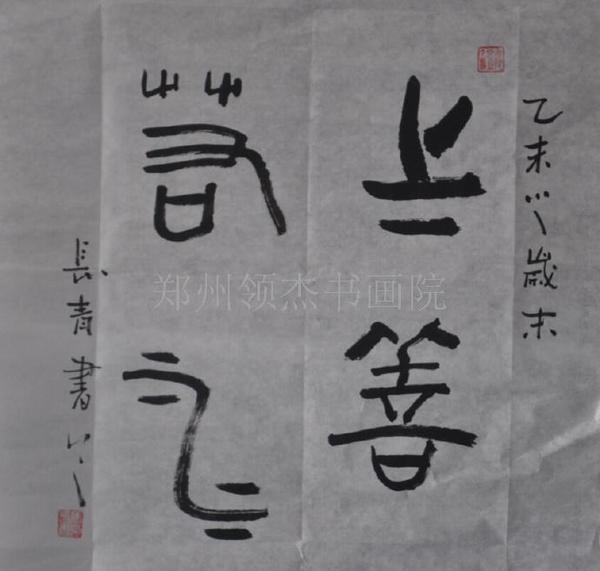 乙未之歲末
上善
若水
長青書之
郑州领杰书画院